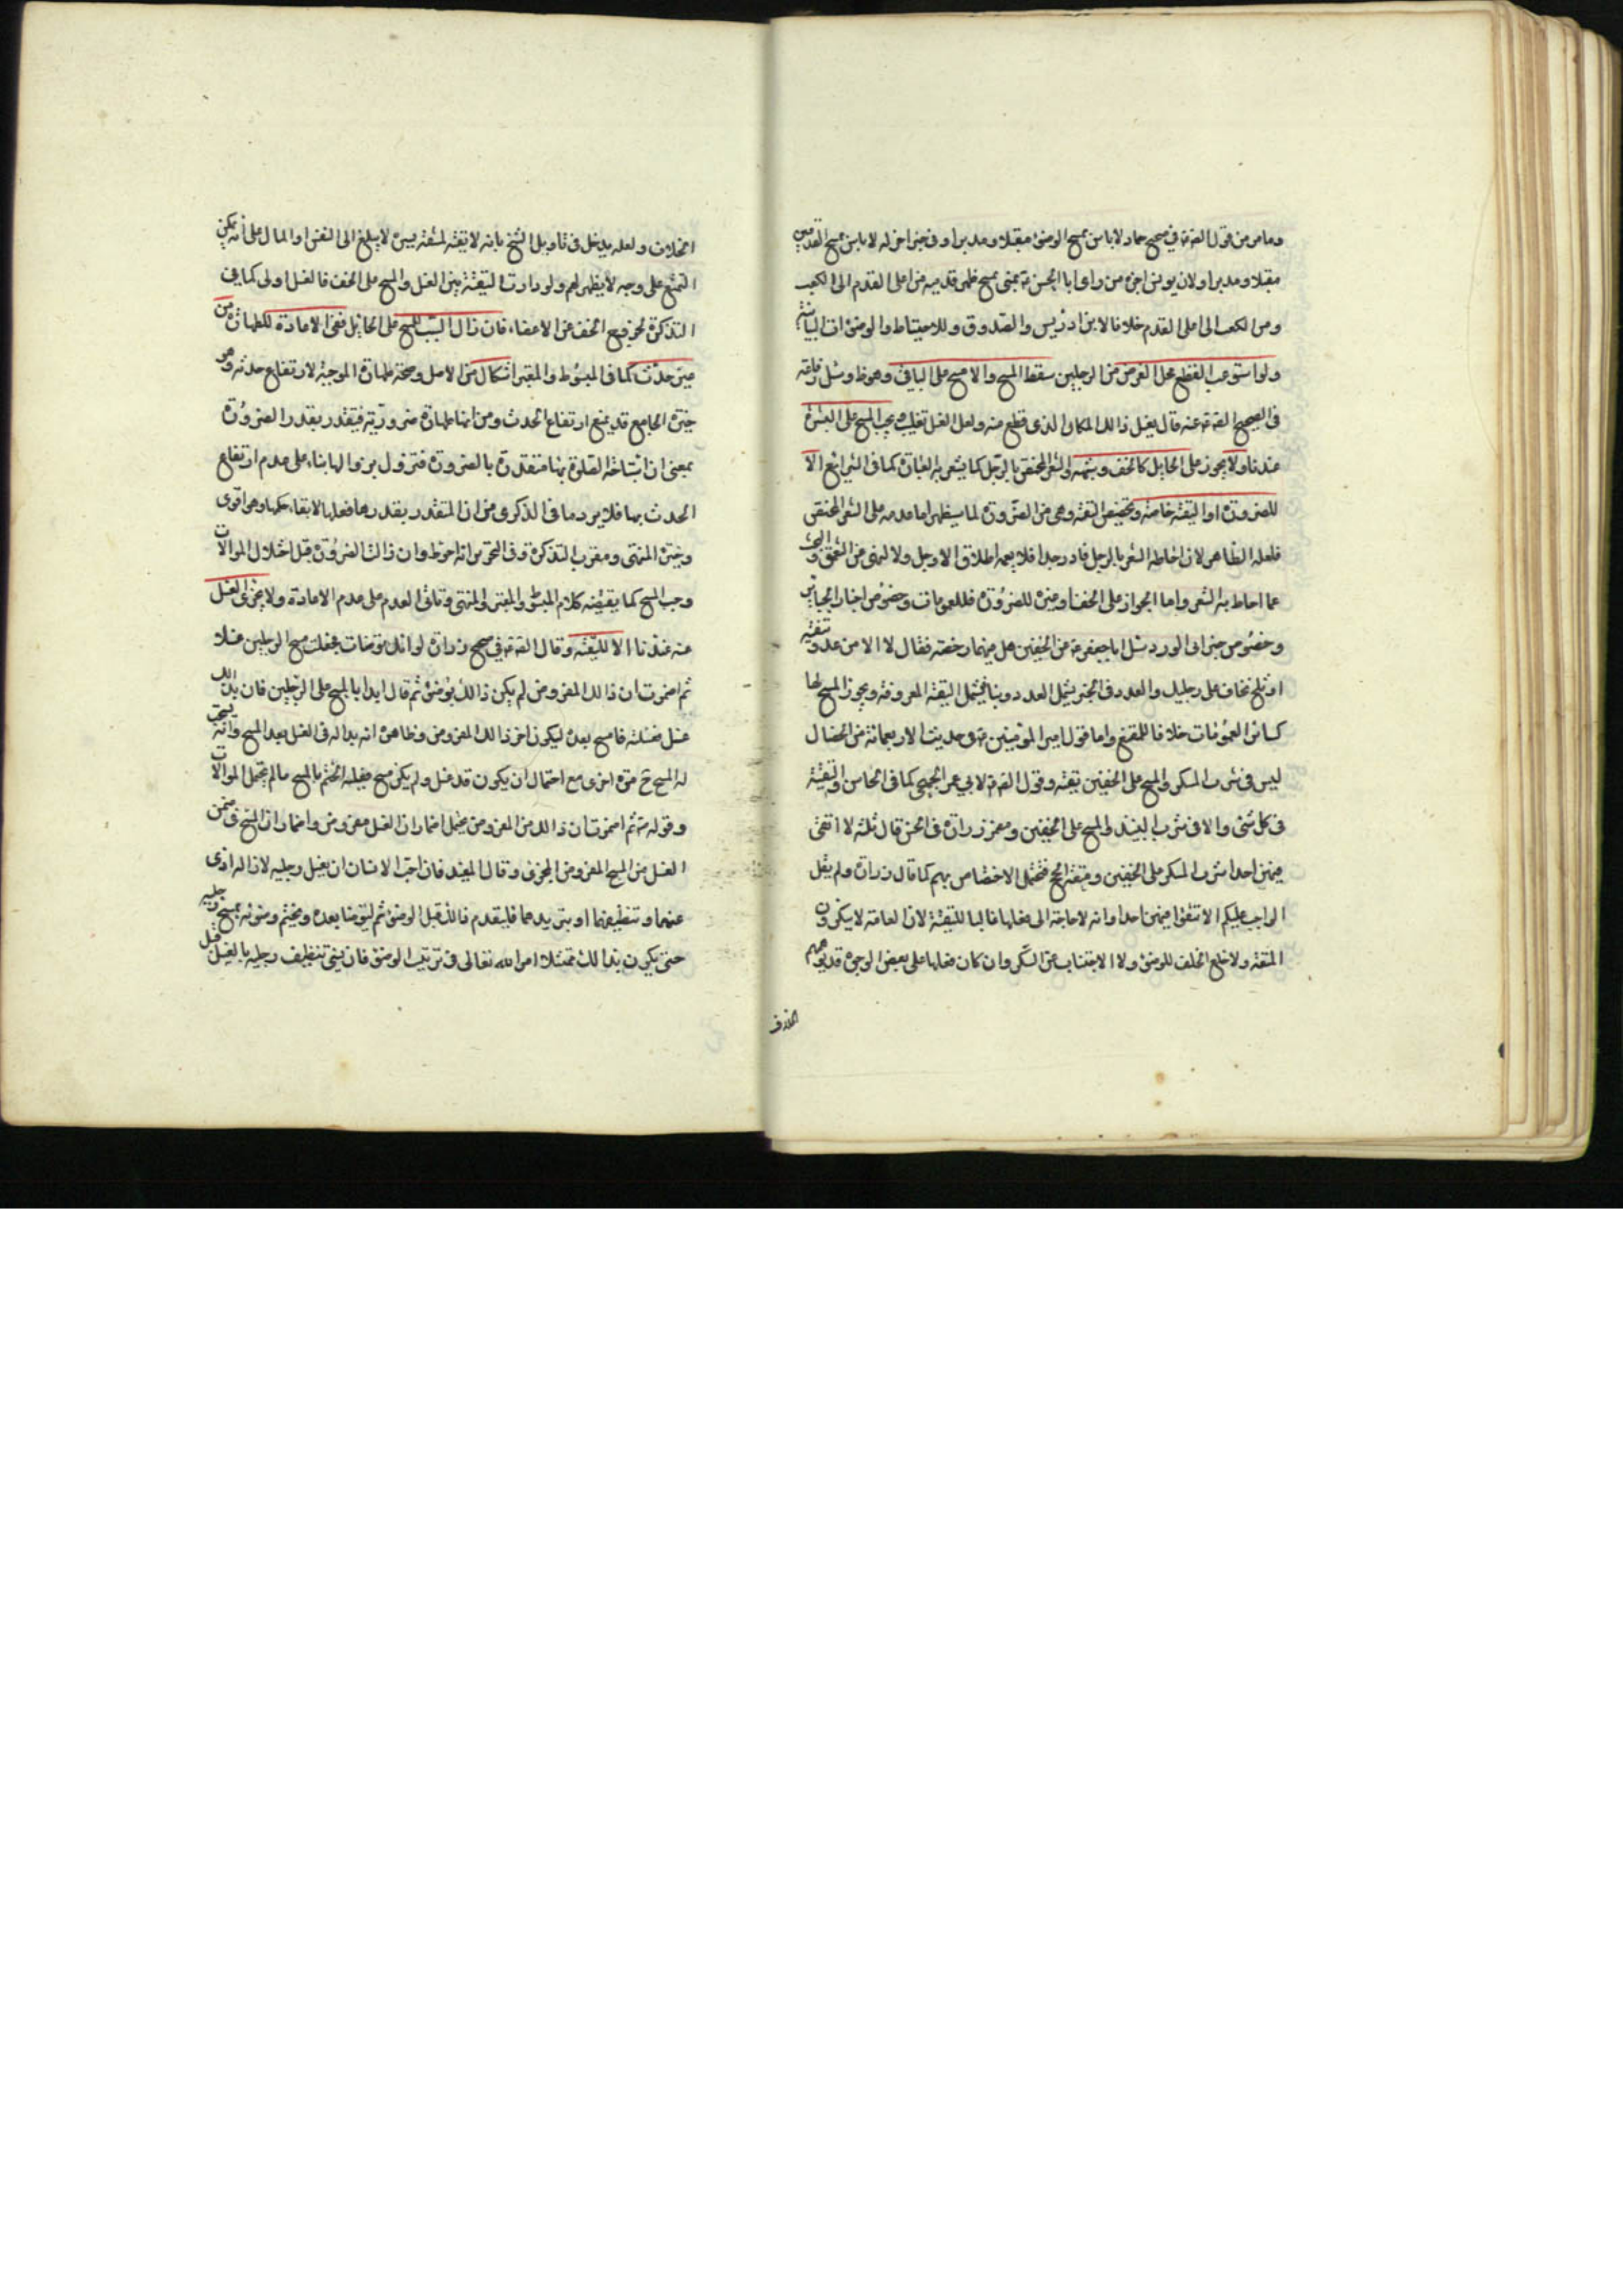 ومامر من قول الصم في صحيح حماد لاباس بمسح الوضوء مقبلا ومدبرا وفي خبر اخر له لاباس بمسح القدمين
مقبلا ومدبرا ولان يونس اخبره من راى ابا الحسن بمنى يمسح ظهر قدميه من اعلى القدم الى الكعب
ومن الكعب الى اعلى القدم خلافا لابن ادريس والصدوق وللاحتياط والوضوءات البيانية
ولو استوعب القطع محل الفرض من الرجلين سقط المسح والا مسح على الباقي وهو ظ وسئل رفاعة
في الصحيح الصم عنه قال يغسل ذالك المكان الذى قطع منه ولعل الغسل تغليب ويجب المسح على البشرة
عندنا ولا يجوز على الحايل كالخف وشبهه والشعر المختص بالرجل كما يشعر به العبارة كما في الشرائع الا
للضرورة او التقية خاصة وتخصيص التقية وهى من الضرورة لما سيظهر اما عدمه على الشعر المختص
فلعله الظاهر لان احاطه الشعر بالرجل نادر جدا فلا يعمه اطلاق الارجل ولا لنهى من التعمق والبحث
عما احاط به الشعر واما الجواز على الخف وغيره للضرورة فللعمومات وخصوص اخبار الجباير
وخصوص خبر ابى الورد سئل اباجعفر عن الخفين هل فيهما رخصة فقال لا الا من عدو تتقيه
او ثلج تخاف على رجليك والعدد في الخبر يشمل العدد دينا فيشمل التقية المعروفة ويجوز المسح لها
كسائر العمومات خلافا للمقنع واما قول امير المؤمنين في حديث الاربعمائة من الخصال
ليس في شرب المسكر والمسح على الخفين تقية وقول الصم لابي عمر العجمي كما في المحاسن والتقية
في كل شئ الا في شرب النبيذ والمسح على الخفين ومضمر زرارة في الحسن قال ثلثة لا اتقى
فيهن احدا شرب المسكر والمسح على الخفين ومتعة الحج فتحتمل الاختصاص بهم كما قال زرارة ولم يقل
الواجب عليكم الا تتقوا فيهن احدا وانه لا حاجة الى فعلها غالبا للتقية لان العامة لا ينكرون
المتعة ولا خلع الخف للوضوء ولا الاجتناب عن السكر وان كان فعلها على بعض الوجوه قد يوهم
الخلاف
الخلاف ولعله يدخل في تاويل الشيخ بانه لا تقية لمشقة يسيرة لا يبلغ الى النفس او المال على انه يمكن
التمتع على وجه لا يظهر لهم ولو دارت التقية بين الغسل والمسح على الخف فالغسل اولى كما في
التذكرة لخروج الخف عن الاعضاء فان زال السبب للمسح على الحائل ففى الاعادة للطهارة من
غير حدث كما في المبسوط والمعتبر اشكال من الاصل وصحة طهارة الموجبة لارتفاع حدثه وهو
خيرة الجامع قد يمنع ارتفاع الحدث ومن انها طهارة ضرورية فيتقدر بقدر الضرورة
بمعنى ان استباحة الصلوة بها متقدرة بالضرورة فتزول بزوالها بناء على عدم ارتفاع
الحدث بها فلا يرد ما في الذكرى من ان المتقدر بقدرها فعلها لا بقاء حكمها وهو اقوى
وخيرة المنتهى ومقرب التذكرة وفي التحرير انه احوط وان زالت الضرورة قبل اخلال الموالات
وجب المسح كما يقتضيه كلام المبسوط والمعتبر والمنتهى وثانى العدم على عدم الاعادة ولا يجزى الغسل
عنه عندنا الا للتقية وقال الصم في صحيح زرارة لو انك توضات فجعلت مسح الرجلين غسلا
ثم اضمرت ان ذالك المفروض لم يكن ذالك بوضوء ثم قال ابدا بالمسح على الرجلين فان بدا لك
غسل فغسلته فامسح بعده ليكون اخر ذالك المفروض وظاهره انه بدا له في الغسل بعد المسح وانه يستحب
له المسح ح مرة اخرى مع احتمال ان يكون قد غسل ولم يكن مسح فعليه الختم بالمسح مالم تخل الموالات
وقوله ثم اضمرت ان ذالك من المفروض يحتمل اضمار ان الغسل مفروض واضمار ان المسح في ضمن
الغسل من المسح المفروض المجزى وقال المفيد فان احب الانسان ان يغسل رجليه لازالة اذى
عنهما وتنظيفهما او تبريدهما فليقدم ذالك قبل الوضوء ثم ليتوضا بعده ويختم وضوئه بمسح رجليه
حتى يكون بذالك ممتثلا امر الله تعالى في ترتيب الوضوء فان نسى تنظيف رجليه بالغسل قبل